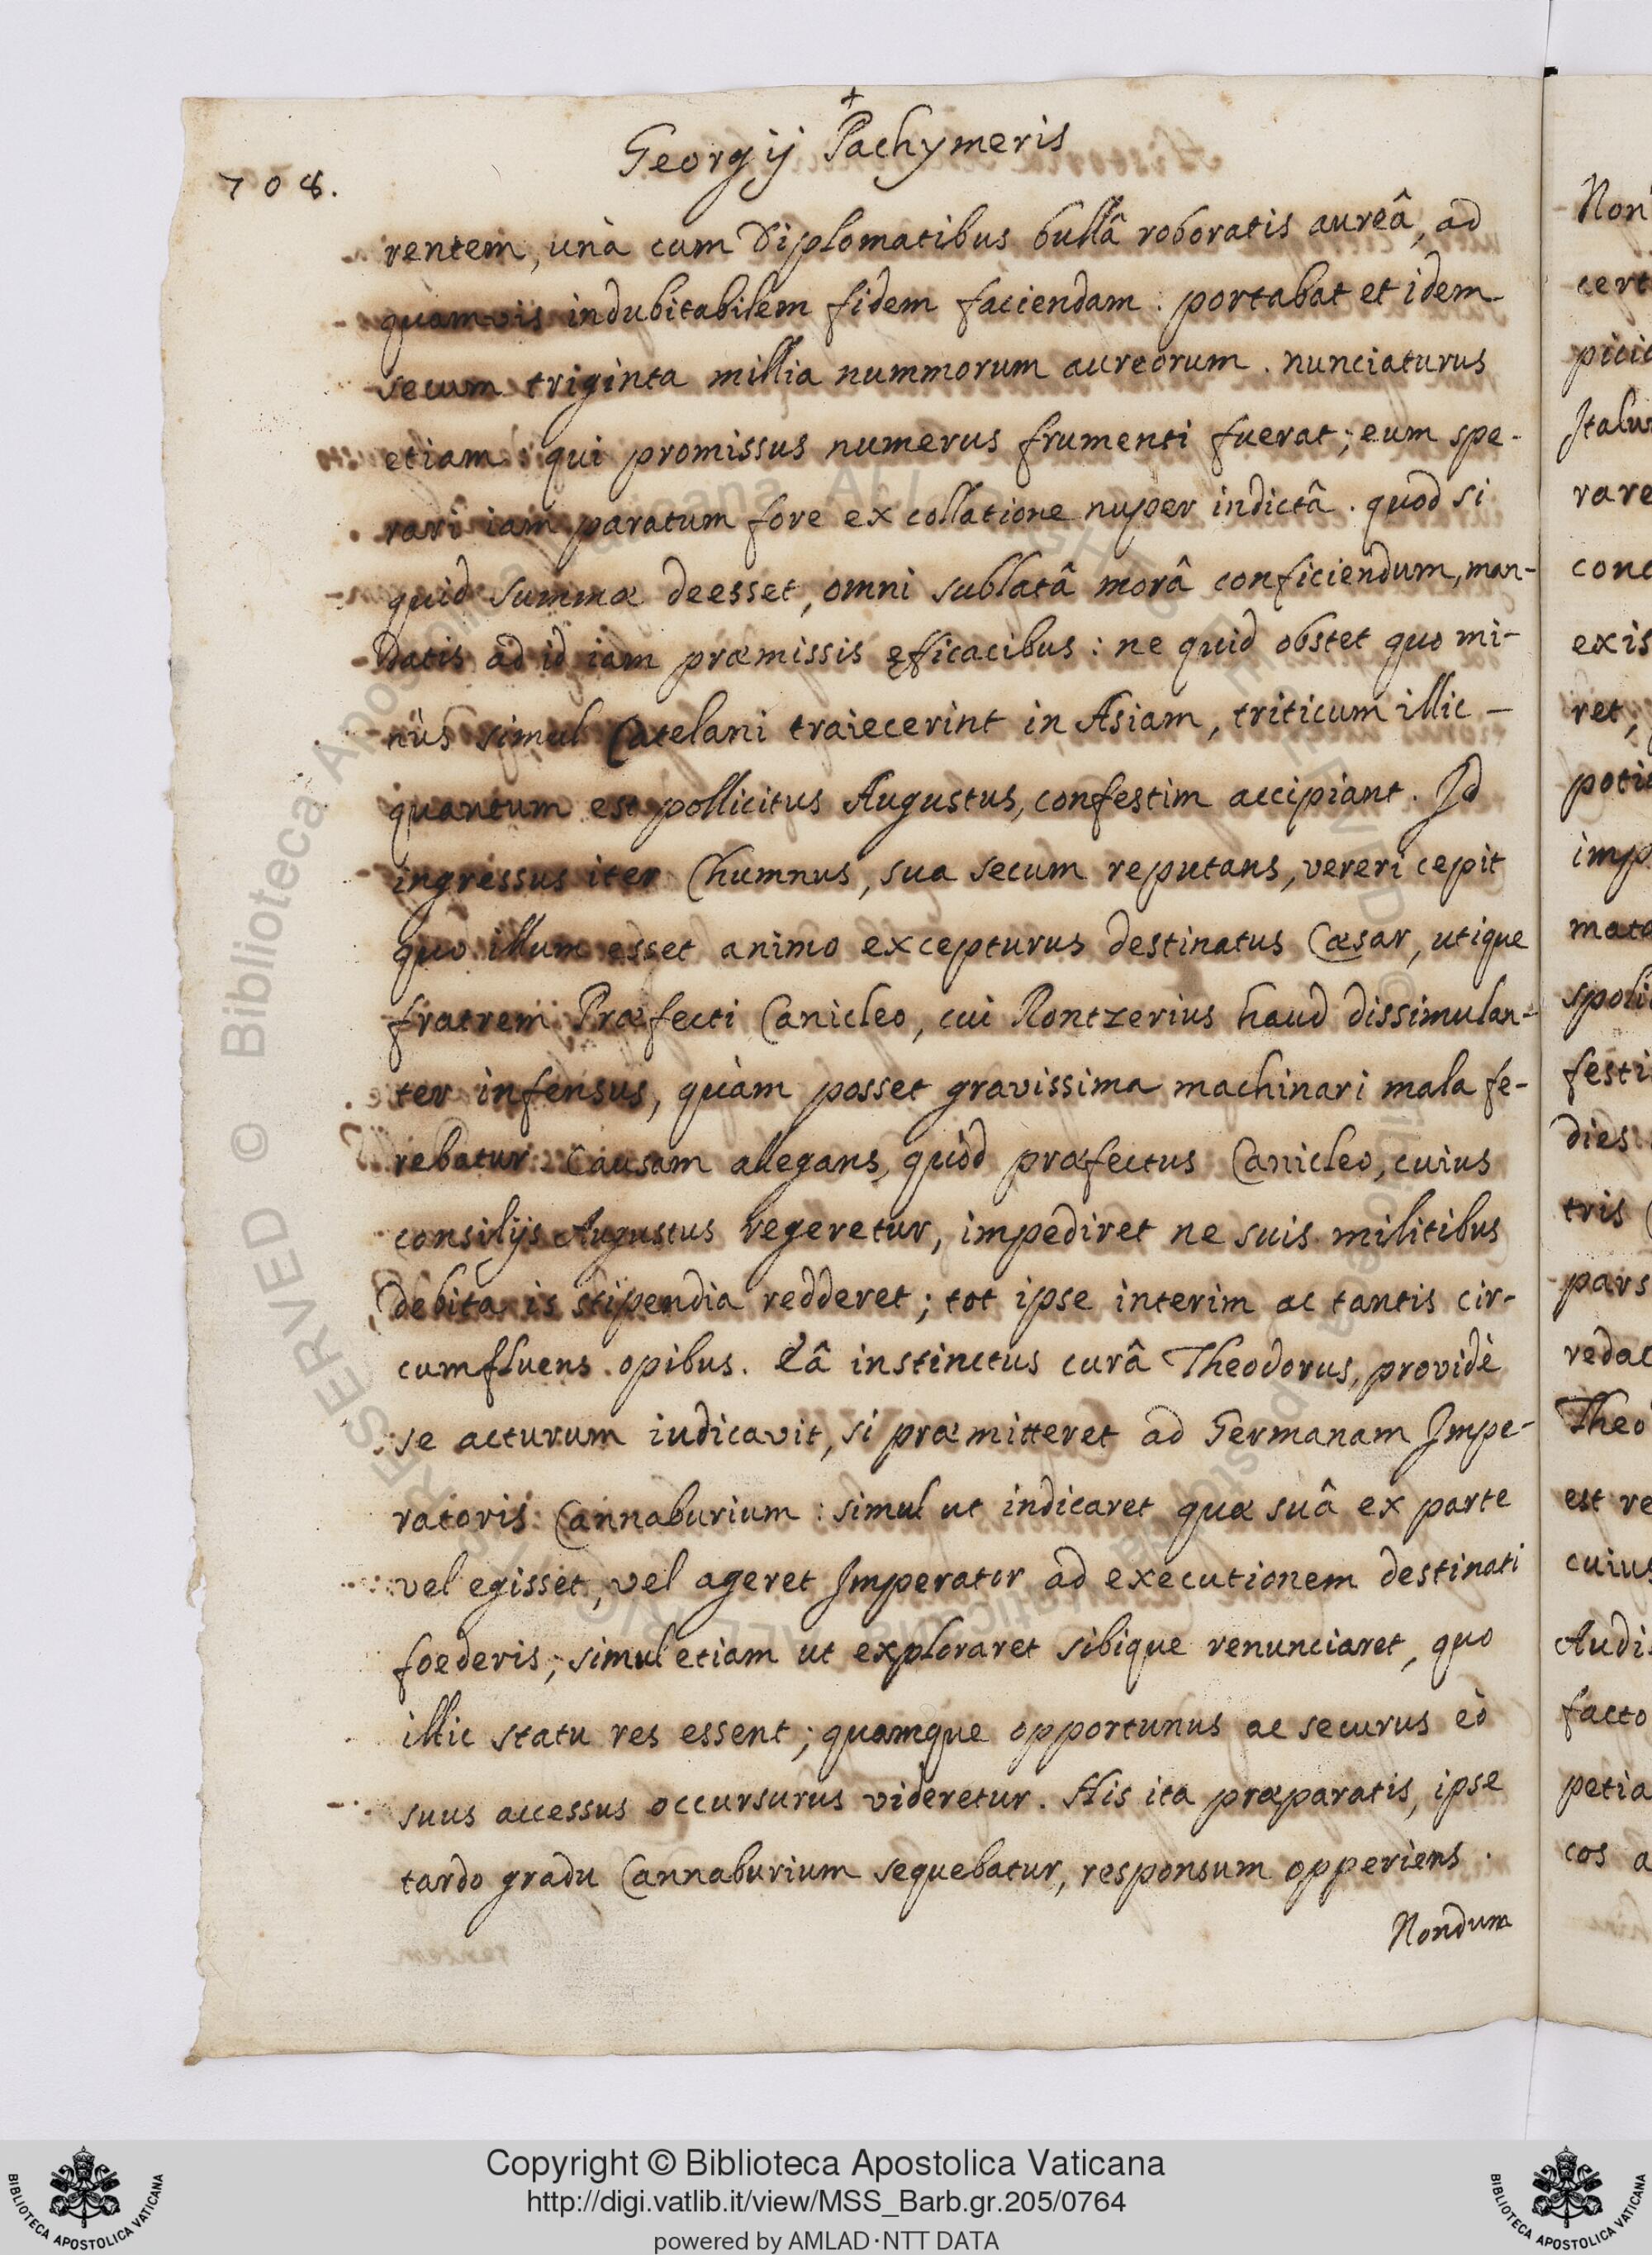 +
Georgij Pachymeris
708.
rentem, unà cum Diplomatibus bullâ roboratis aureâ, ad
quamvis indubitabilem fidem faciendam: portabat et idem
secum triginta millia nummorum aureorum. nunciaturus
etiam: qui promissus numerus frumenti fuerat; eum spe-
rari iam paratum fore ex collatione nuper indictâ. quod si
quid summæ deesset, omni sublatâ morâ conficiendum, man-
datis ad id iam præmissis efficacibus: ne quid obstet quo mi-
nùs simul Catelani traiecerint in Asiam, triticum illic -
quantum est pollicitus Augustus, confestim accipiant. Id
ingressus iter Chumnus, sua secum reputans, vereri cepit
quo illum esset animo excepturus destinatus Cæsar, utique
fratrem Præfecti Canicleo, cui Rontzerius haud dissimulan-
ter infensus, quàm posset gravissima machinari mala fe-
rebatur. Causam allegans, quòd præfectus Canicleo, cuius
consilijs Augustus regeretur, impediret ne suis militibus
debita is stipendia redderet; tot ipse interim ac tantis cir-
cumfluens opibus. Eâ instinctus curâ Theodorus, providè
se acturum iudicavit, si præmitteret ad Germanam Impe-
ratoris Cannaburium: simul ut indicaret quæ suâ ex parte
vel egisset, vel ageret Imperator ad executionem destinati
foederis; simul etiam ut exploraret sibique renunciaret, quo
illic statu res essent; quamque opportunus ac securus eò
suus accessus occursurus videretur. His ita præparatis, ipse
tardo gradu Cannaburium sequebatur, responsum opperiens.
Nondum
Copyright © Biblioteca Apostolica Vaticana
http://digi.vatlib.it/view/MSS_Barb.gr.205/0764
powered by AMLAD·NTT DATA
BIBLIOTECA APOSTOLICA VATICANA
BIBLIOTECA APOSTOLICA VATICANA